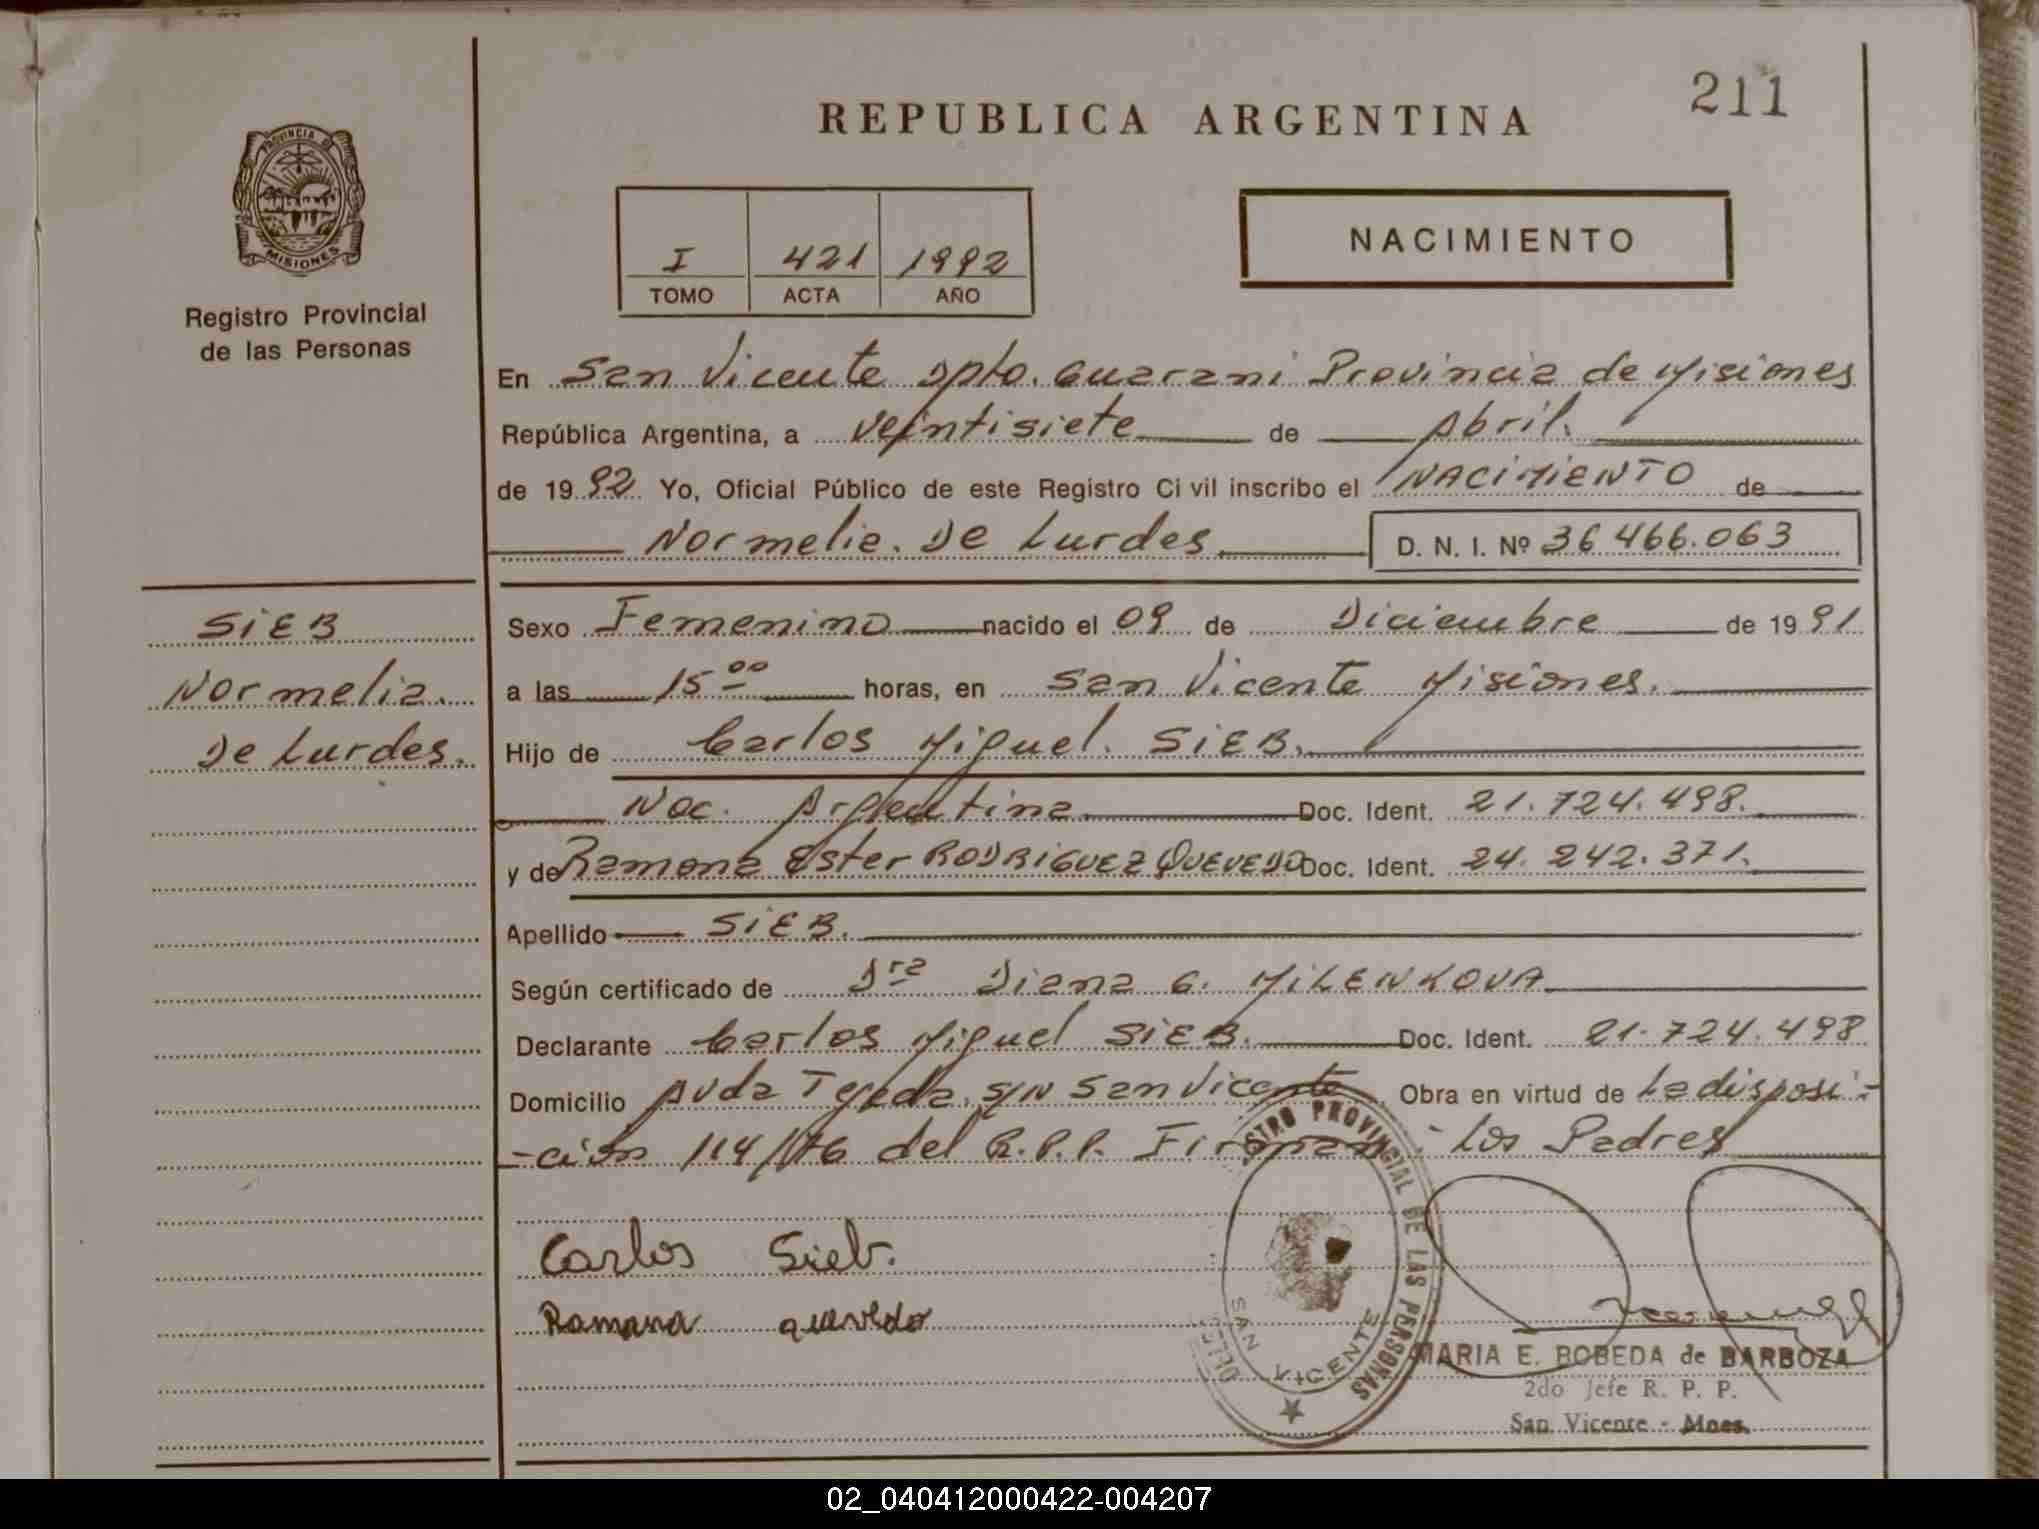 211
REPUBLICA ARGENTINA
PROVINCIA DE
MISIONES
Registro Provincial
de las Personas
I 421 1992
TOMO ACTA AÑO
NACIMIENTO
En San Vicente Dpto. Guarani Provincia de Misiones
República Argentina, a Veintisiete de Abril.
de 1992 Yo, Oficial Público de este Registro Civil inscribo el NACIMIENTO de
Normelia. De Lurdes D. N. I. Nº 36 466.063
SiEB
Normelia.
De Lurdes.
Sexo Femenino nacido el 09 de Diciembre de 1991
a las 15 00 horas, en San Vicente Misiones.
Hijo de Carlos Miguel. SiEB.
Nac. Argentina Doc. Ident. 21.724.498.
y de Ramona Ester RODRiGUEZ QUEVEDO Doc. Ident. 24.242.371.
Apellido SiEB.
Según certificado de Dra Diana G. MiLENKOVA
Declarante Carlos Miguel SiEB. Doc. Ident. 21.724.498
Domicilio Avda Tejeda. S/N San Vicente Obra en virtud de La disposi-
-ción 114/76 del R.P.P. Firman - Los Padres
Carlos Sieb.
Ramona quevedo
STRO PROVINCIAL DE LAS PERSONAS
SAN VICENTE
MARIA E. BOBEDA de BARBOZA
2do Jefe R. P. P.
San Vicente - Mnes.
02_040412000422-004207